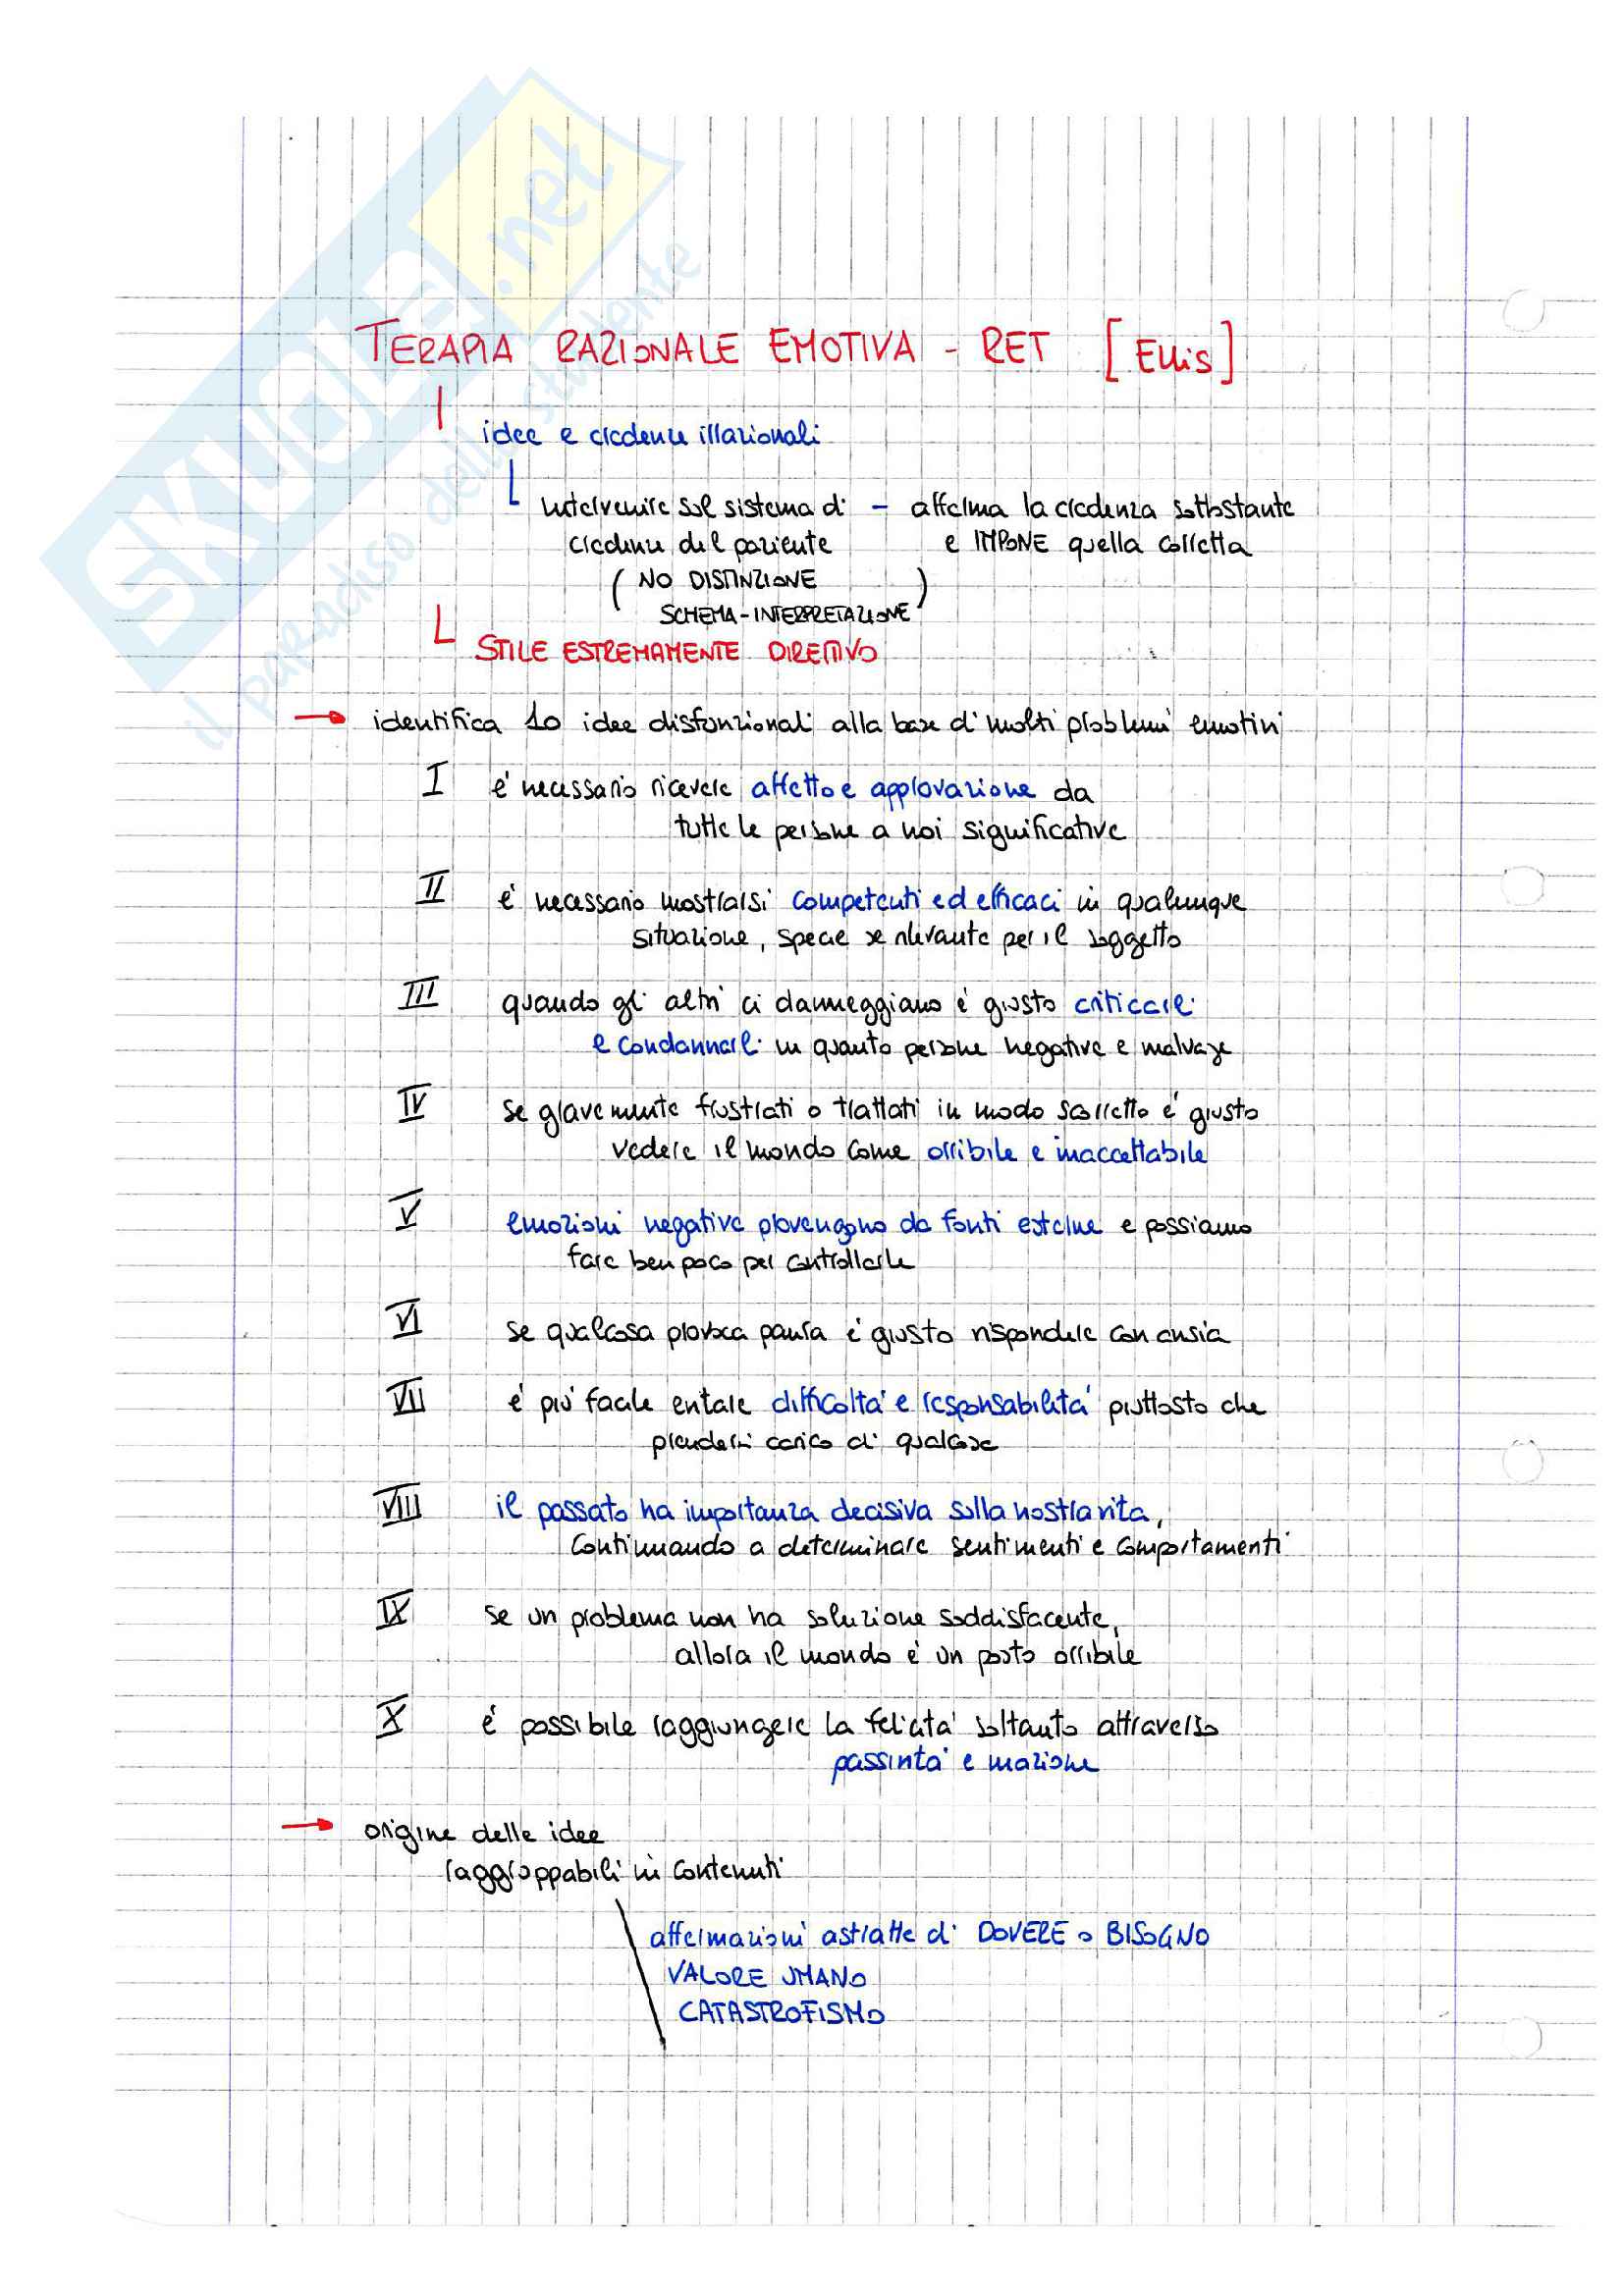 SKUOLA.net
il paradiso dello studente
TERAPIA RAZIONALE EMOTIVA - RET [Ellis]
idee e credenze irrazionali
intervenire sul sistema di - afferma la credenza sottostante
credenze del paziente e IMPONE quella corretta
( NO DISTINZIONE
SCHEMA-INTERPRETAZIONE )
STILE ESTREMAMENTE DIRETTIVO
→ identifica 10 idee disfunzionali alla base di molti problemi emotivi
I é necessario ricevere affetto e approvazione da
tutte le persone a noi significative
II é necessario mostrarsi competenti ed efficaci in qualunque
situazione, specie se rilevante per il soggetto
III quando gli altri ci danneggiano é giusto criticarli
e condannarli in quanto persone negative e malvage
IV se gravemente frustrati o trattati in modo scorretto é giusto
vedere il mondo come orribile e inaccettabile
V emozioni negative provengono da fonti esterne e possiamo
fare ben poco per controllarle
VI se qualcosa provoca paura é giusto rispondere con ansia
VII é piú facile evitare difficoltá e responsabilitá piuttosto che
prendersi carico di qualcosa
VIII il passato ha importanza decisiva sulla nostra vita,
continuando a determinare sentimenti e comportamenti
IX se un problema non ha soluzione soddisfacente,
allora il mondo é un posto orribile
X é possibile raggiungere la felicitá soltanto attraverso
passivitá e inazione
→ origine delle idee
raggruppabili in contenuti
affermazioni astratte di DOVERE o BISOGNO
VALORE UMANO
CATASTROFISMO